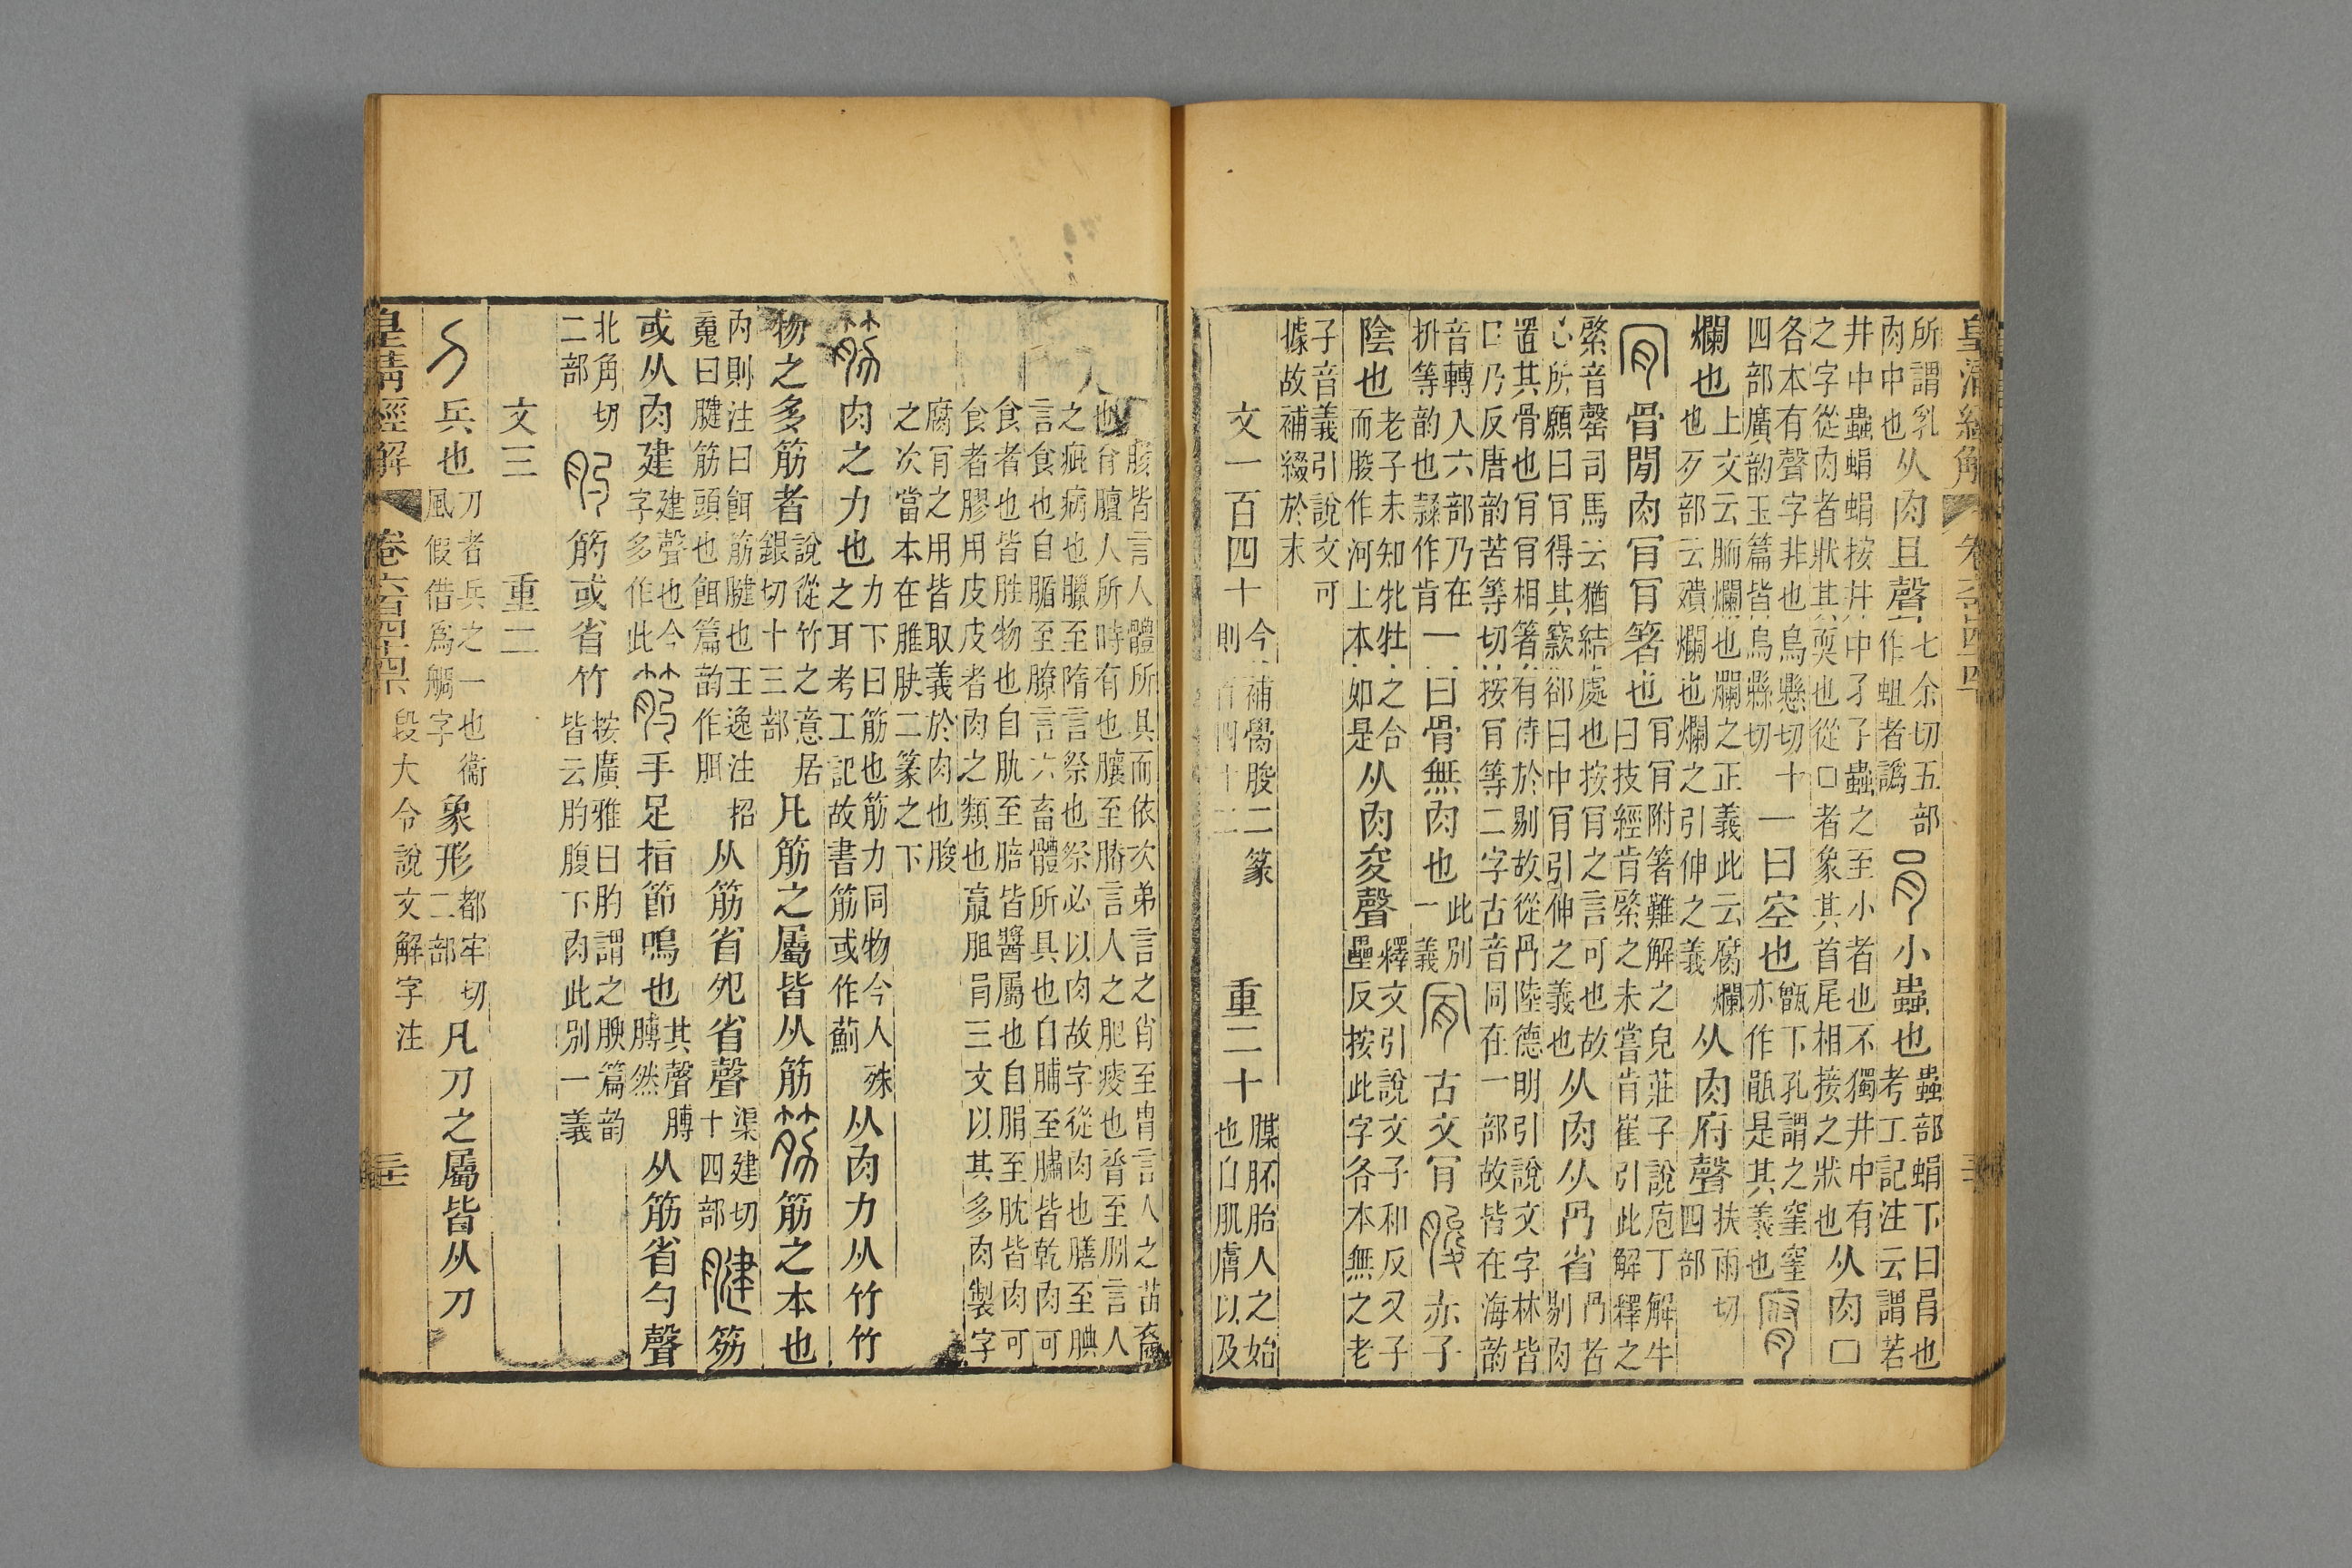 皇清經解 卷六百四十四
所謂乳
肉中也
从肉且聲
七余切五部
作蛆者譌
肙小蟲也
蟲部蜎下曰肙也
考工記注云謂若
井中蟲蜎蜎按井中孑孓蟲之至小者也不獨井中有
之字從肉者狀其耎也從口者象其首尾相接之狀也
从肉口
各本有聲字非也烏懸切十
四部廣韵玉篇皆烏縣切
一曰空也
甑下孔謂之窐窐
亦作是其義也
腐
爛也
上文云胹爛也爛之正義此云腐爛
也歹部云殨爛也爛之引伸之義
从肉府聲
扶雨切
四部
肎骨閒肉肎肎箸也
肎肎附箸難解之皃莊子說庖丁解牛
曰技經肯綮之未嘗肯崔引此解釋之
綮音罄司馬云猶結處也按肎之言可也故
心所願曰肎得其窾郤曰中肎引伸之義也
从肉从冎省
冎者
剔肉
置其骨也肎肎相箸有待於剔故從冎陸德明引說文字林皆
口乃反唐韵苦等切按肎等二字古音同在一部故皆在海韵
音轉入六部乃在
拚等韵也隸作肯
一曰骨無肉也
此別
一義
肎古文肎
脧赤子
陰也
老子未知牝牡之合
而脧作河上本如是
从肉夋聲
釋文引說文子和反又子
壘反按此字各本無之老
子音義引說文可
據故補綴於末
文一百四十
今補臋脧二篆
則百四十二
重二十
腜肧胎人之始
也自肌膚以及
脧皆言人體所具而依次弟言之肖至胄言人之苗裔
也膻人所時有也至膌言人之肥瘦也脀至言人
之疵病也臘至隋言祭也祭必以肉故字從肉也膳至腆
言食也自腯至膫言六畜體所具也自脯至皆乾肉可
食者也皆胜物也自至皆醬屬也自至皆肉可
食者膠用皮皮者肉之類也胆肙三文以其多肉製字
腐肎之用皆取義於肉也脧
之次當本在脽肤二篆之下
筋肉之力也
力下曰筋也筋力同物今人殊
之耳考工記故書筋或作薊
从肉力从竹竹
物之多筋者
說從竹之意居
銀切十三部
凡筋之屬皆从筋
筋之本也
内則注曰餌筋腱也王逸注招
䰟曰腱筋頭也餌篇韵作䏪
从筋省夗省聲
渠建切
十四部
腱笏
或从肉建
建聲也今
字多作此
手足指節鳴也
其聲膊
膊然
从筋省勺聲
北角切
二部
肑筋或省竹
按廣雅曰肑謂之腴篇韵
皆云肑腹下肉此別一義
文三 重二
刀兵也
刀者兵之一也衞
風假借爲鯛字
象形
都牢切
二部
凡刀之屬皆从刀
皇清經解 卷六百四十四 段大令說文解字注 三十